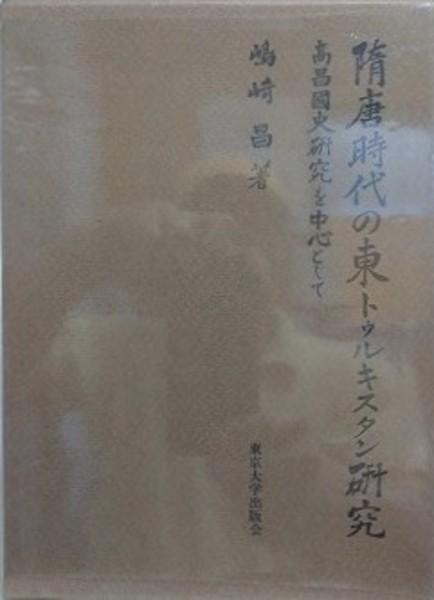 隋唐時代の東トゥルキスタン研究
高昌國史研究を中心として
嶋崎昌著
東京大学出版会